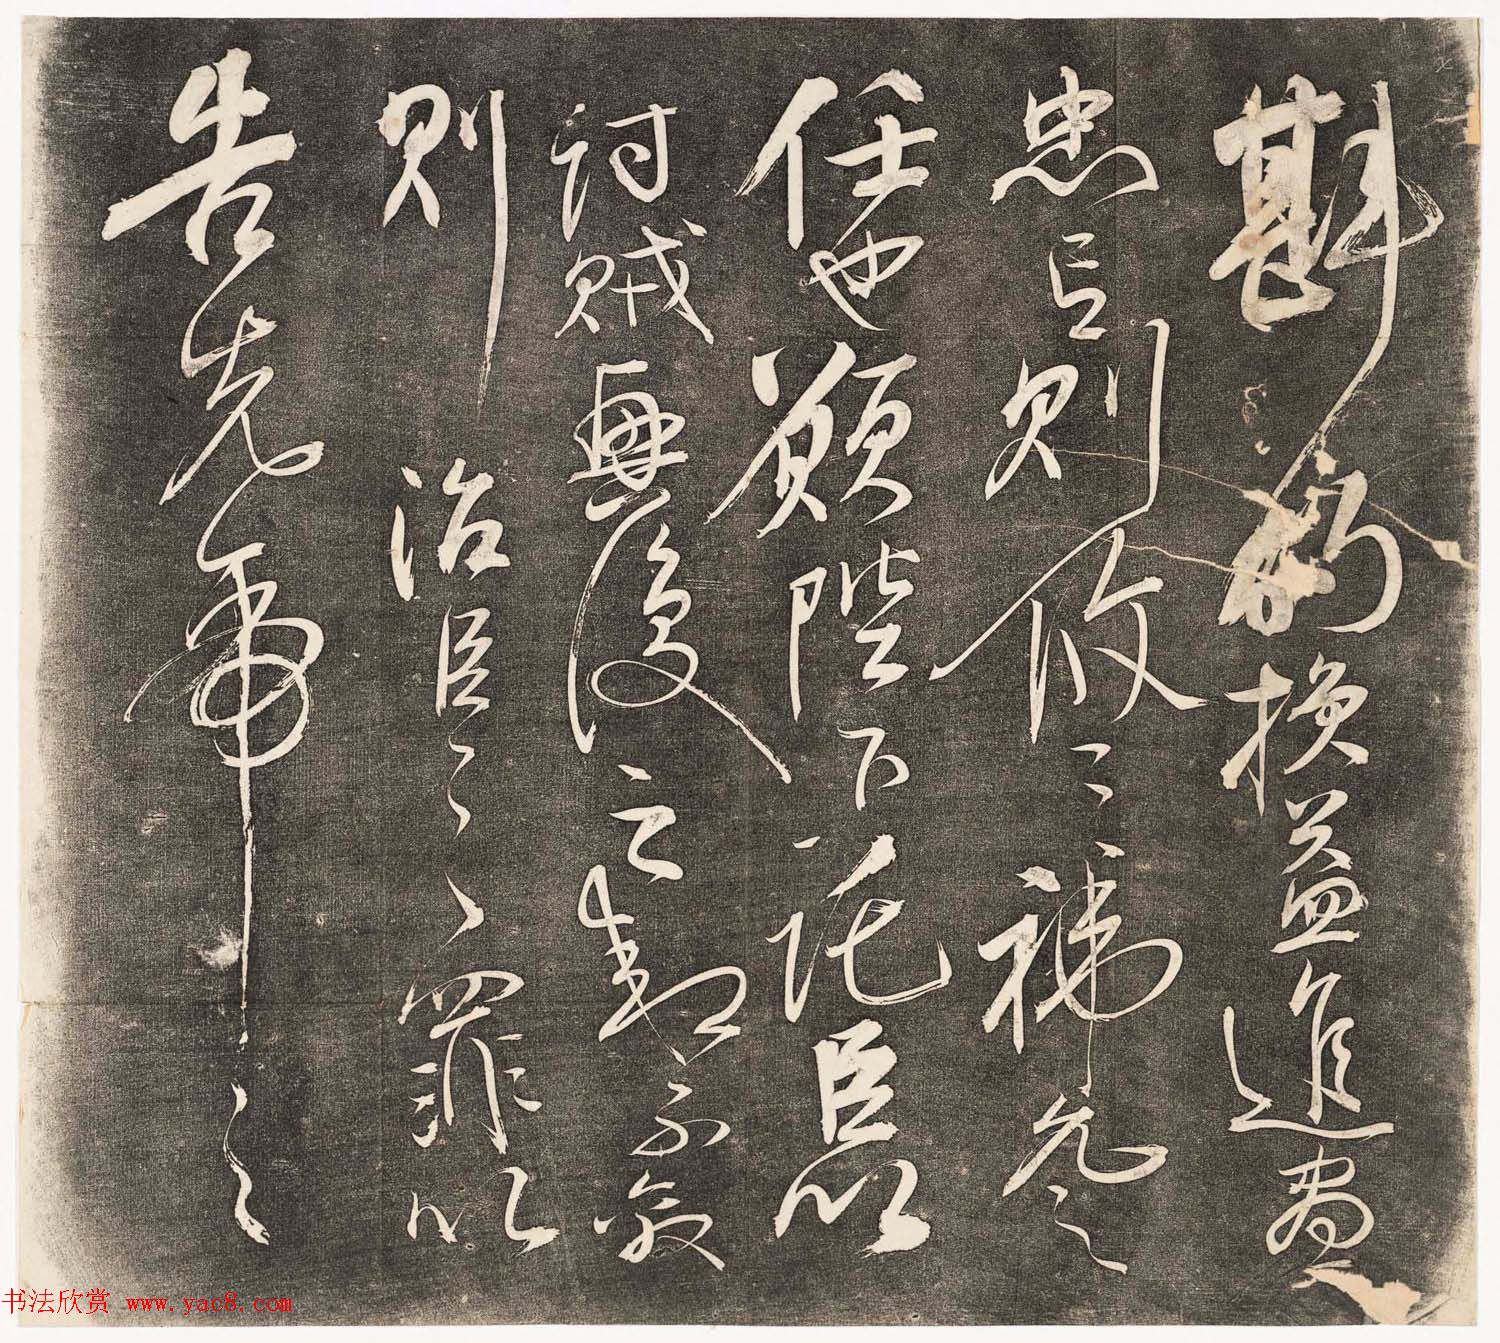 斟酌損益進盡
忠言則攸之禕允之
任也願陛下託臣以
討賊興復之效不效
則治臣之罪以
告先帝之
书法欣赏 www.yac8.com